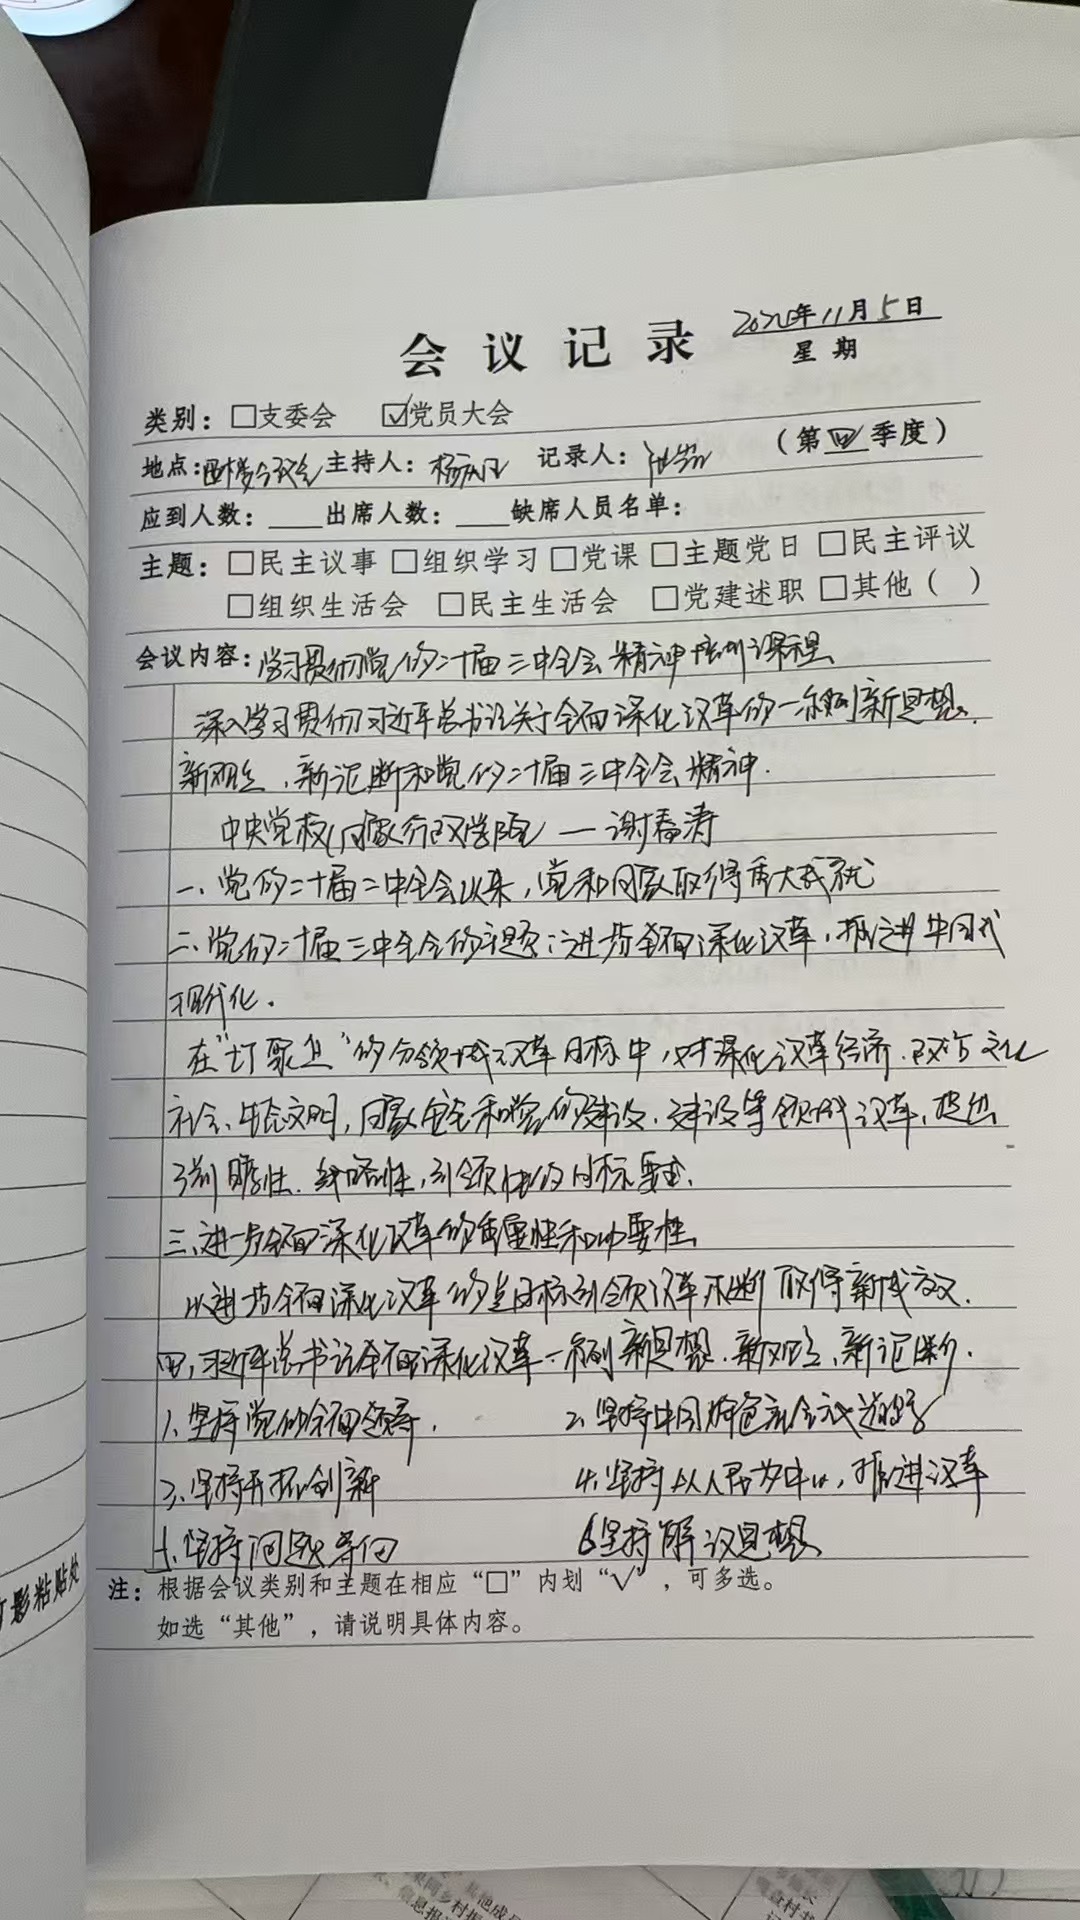 会议记录
年11月5日
星期
类别：□支委会 ☑党员大会
地点：西楼会议室 主持人：杨 记录人： （第四季度）
应到人数：____出席人数：____缺席人员名单：
主题：□民主议事 □组织学习 □党课 □主题党日 □民主评议
□组织生活会 □民主生活会 □党建述职 □其他（ ）
会议内容：学习贯彻党的二十届三中全会精神培训课程
深入学习贯彻习近平总书记关于全面深化改革的一系列新思想、
新观点、新论断和党的二十届三中全会精神.
中央党校(国家行政学院) — 谢春涛
一、党的二十届二中全会以来，党和国家取得重大成就
二、党的二十届三中全会的主题：进一步全面深化改革，推进中国式
现代化.
在“七个聚焦”的分领域改革目标中，对深化改革经济、政治、文化
社会、生态文明，国家安全和党的建设、建设等领域改革，提出
前瞻性、战略性、引领性的目标要求.
三、进一步全面深化改革的重要性和必要性
以进一步全面深化改革的总目标引领改革不断取得新成效.
四、习近平总书记全面深化改革一系列新思想、新观点、新论断.
1、坚持党的全面领导. 2、坚持中国特色社会主义道路
3、坚持开拓创新 4、坚持以人民为中心，推进改革
5、坚持问题导向 6坚持解放思想
注：根据会议类别和主题在相应“□”内划“√”，可多选。
如选“其他”，请说明具体内容。
影粘贴处